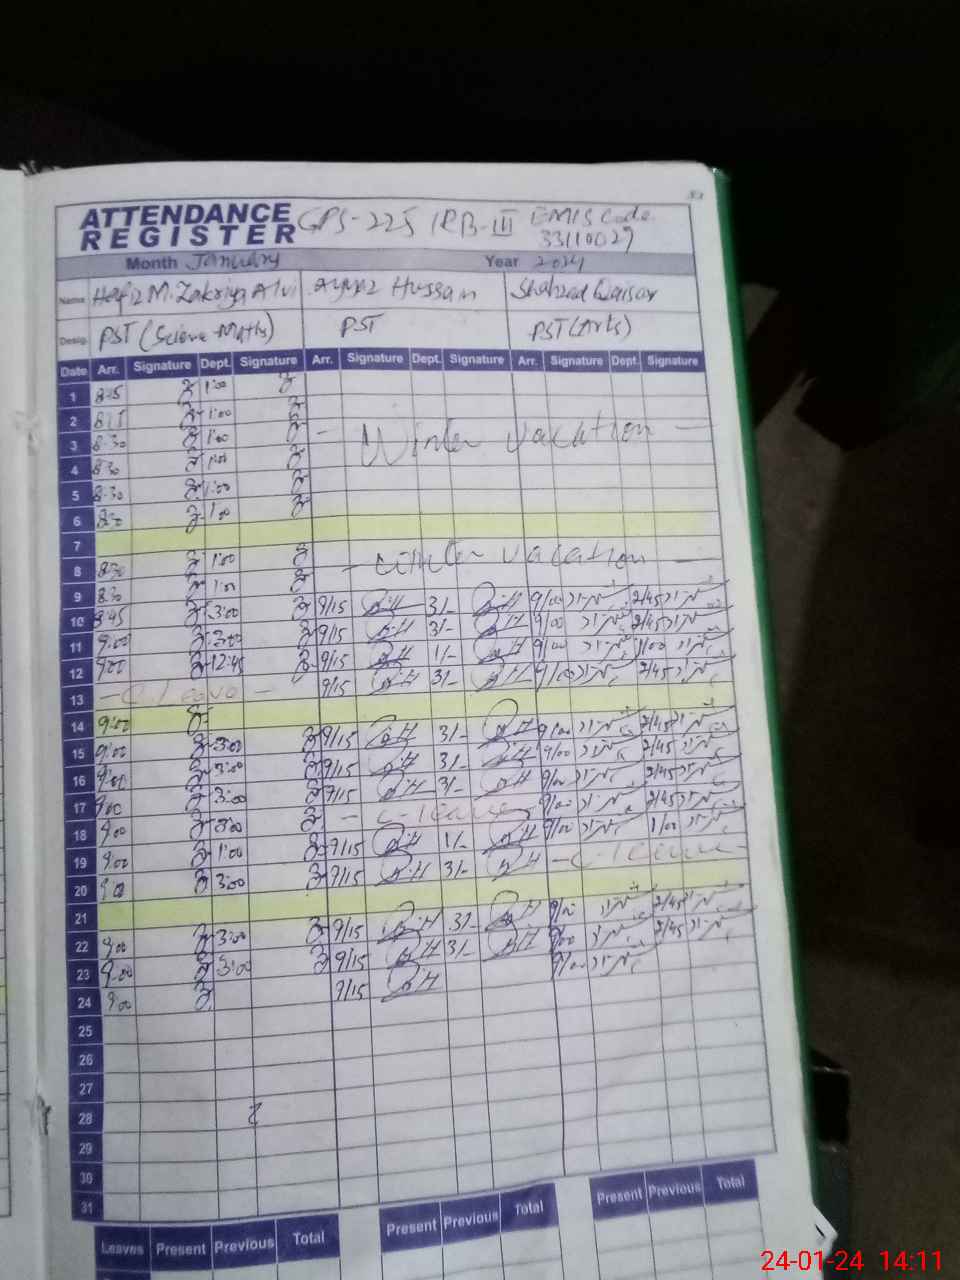 ATTENDANCE REGISTER GPS-225 /RB-III EMIS Code 33110029
Month January Year 2024
Name Hafiz M. Zakriya Alvi Hussain Shahzad Qaisar
Desig. PST (Science-Maths) PST PST (Arts)
Date Arr. Signature Dept. Signature Arr. Signature Dept. Signature Arr. Signature Dept. Signature
1 8:15 1:00
2 8:15 1:00
3 8:30 1:00 - Winter vacation -
4 8:30 1:00
5 8:30 1:00
6 8:30 1:00
7
8 8:30 1:00 - winter vacation -
9 8:30 1:00
10 8:45 3:00 9/15 3/- 9/00 2/45
11 9:00 3:00 9/15 3/- 9/00 2/45
12 9:00 12:45 9/15 1/- 9/00 1/00
13 - C. Leave - 9/15 3/- 9/00 2/45
14 9:00
15 9:00 3:00 9/15 3/- 9/00 2/45
16 9:00 3:00 9/15 3/- 9/00 2/45
17 9:00 3:00 9/15 3/- 9/00 2/45
18 9:00 3:00 - C-leave 9/00 2/45
19 9:00 1:00 9/15 1/- 9/00 1/00
20 9:00 3:00 9/15 3/- - C-leave -
21
22 9:00 3:00 9/15 3/- 9/00 2/45
23 9:00 3:00 9/15 3/- 9/00 2/45
24 9:00 9/15 9/00
25
26
27
28
29
30
31
Leaves Present Previous Total Present Previous Total Present Previous Total
24-01-24 14:11